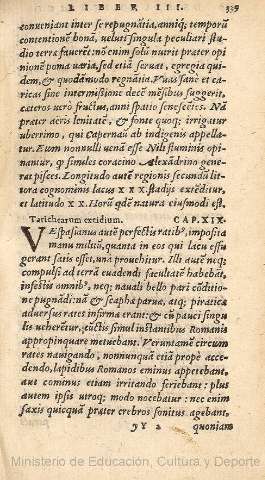 LIBER III. 339
conueniant inter se repugnãtia, anniq; temporũ
contentione bona, veluti singula peculiari stu-
dio terræ fauerẽt: nõ enim solũ nutrit præter opi
nionẽ poma varia, sed etiã seruat, egregia qui-
dem, & quodãmodo regnãtia. Vuas sanè et ca-
ricas sine intermissione decẽ mẽsibus suggerit,
cæteros verò fructus, anni spatio senescẽtes. Nã
præter aëris lenitatẽ, & fonte quoq; irrigatur
vberrimo, qui Capernau ab indigenis appella-
tur. Eum nonnulli venã esse Nili fluminis opi-
nantur, q simules coracino Alexãdrino gene-
rat pisces. Longitudo autẽ regionis secundũ lit-
tora cognominis lacus XXX. stadijs extẽditur,
et latitudo XX. Horũ qdẽ natura eiusmodi est.
Tarichearum excidium. CAP. XIX.
VEspasianus autẽ perfectis ratib⁹, imposita
manu militũ, quanta in eos qui lacu effu
gerant satis esset, unà prouehitur. Illi autẽ neq;
compulsi ad terrã euadendi facultatẽ habebãt,
infestis omnib⁹, neq; nauali bello pari cõditio-
ne pugnãdi: nã & scaphæ paruæ, atq; piraticæ
aduersus rates infirmæ erant: & cũ pauci singu
lis ueherẽtur, cũctis simul instantibus Romanis
appropinquare metuebant. Veruntamẽ circum
rates nauigando, nonnunquã etiã propè acce-
dendo, lapidibus Romanos eminus appetebant,
aut cominus etiam irritando feriebant: plus
autem ipsis utroq; modo nocebatur: nec enim
saxis quicquã præter crebros sonitus agebant,
yY 2 quoniam
Ministerio de Educación, Cultura y Deporte